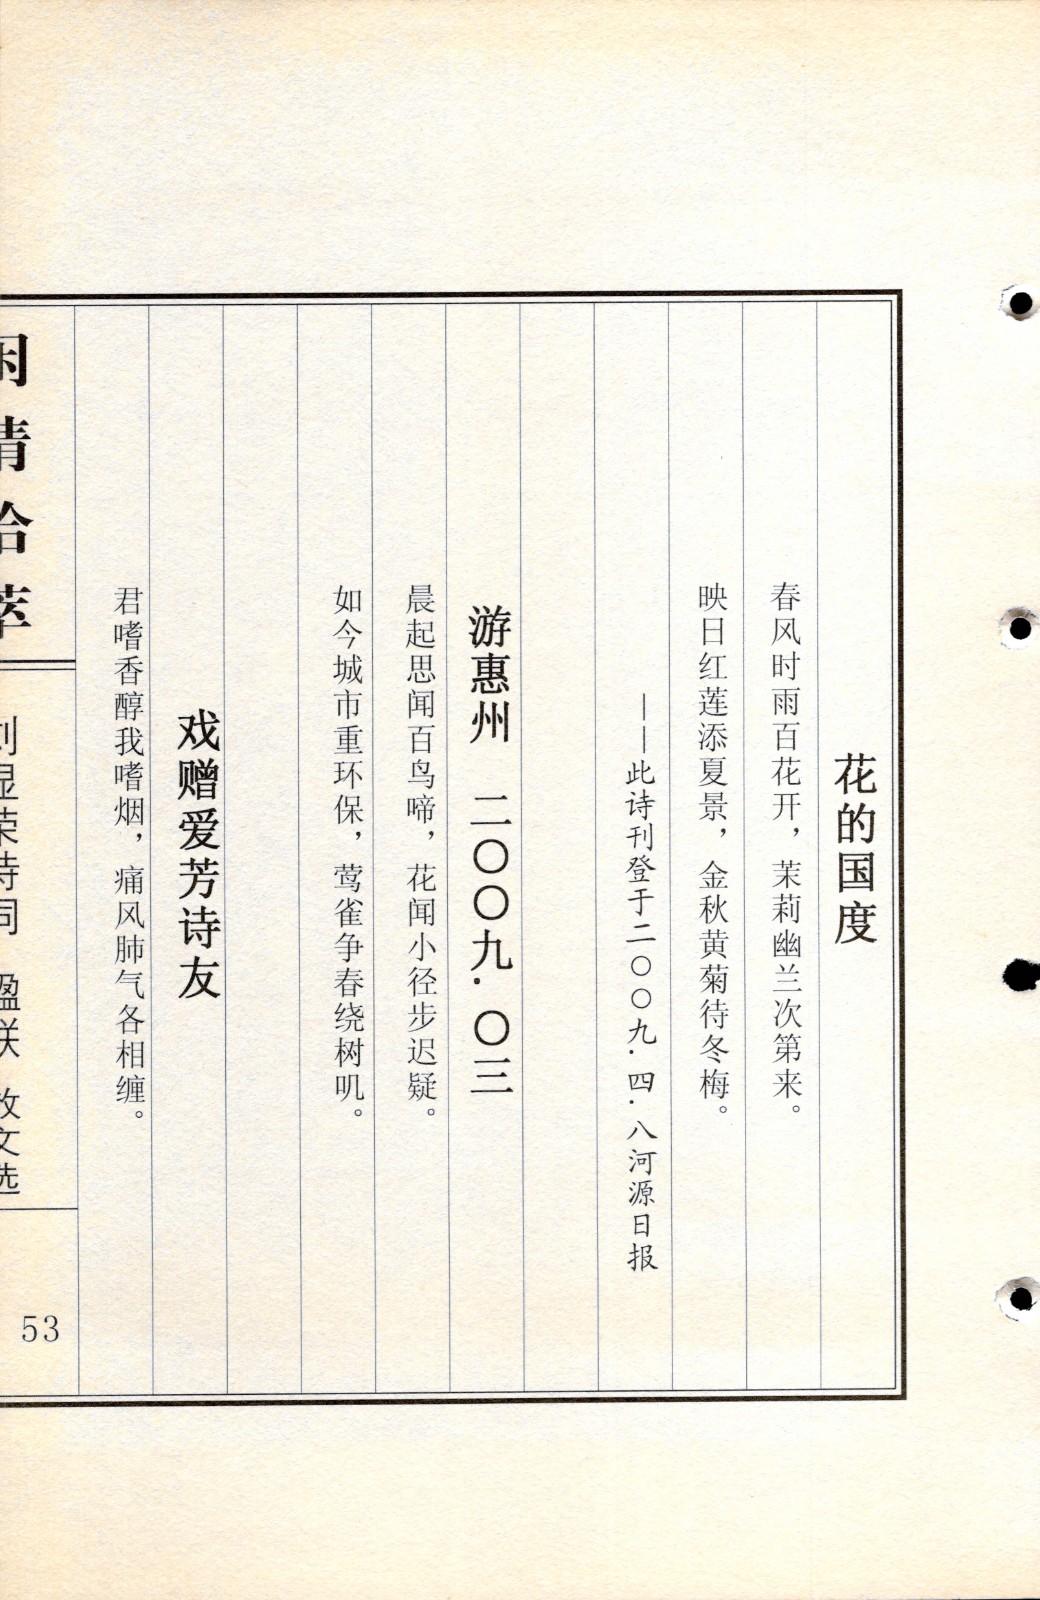 花的国度
春风时雨百花开，茉莉幽兰次第来。
映日红莲添夏景，金秋黄菊待冬梅。
——此诗刊登于二〇〇九.四.八河源日报
游惠州 二〇〇九.〇三
晨起思闻百鸟啼，花闻小径步迟疑。
如今城市重环保，莺雀争春绕树叽。
戏赠爱芳诗友
君嗜香醇我嗜烟，痛风肺气各相缠。
闲情拾萃
刘显荣诗词 楹联 散文选
53